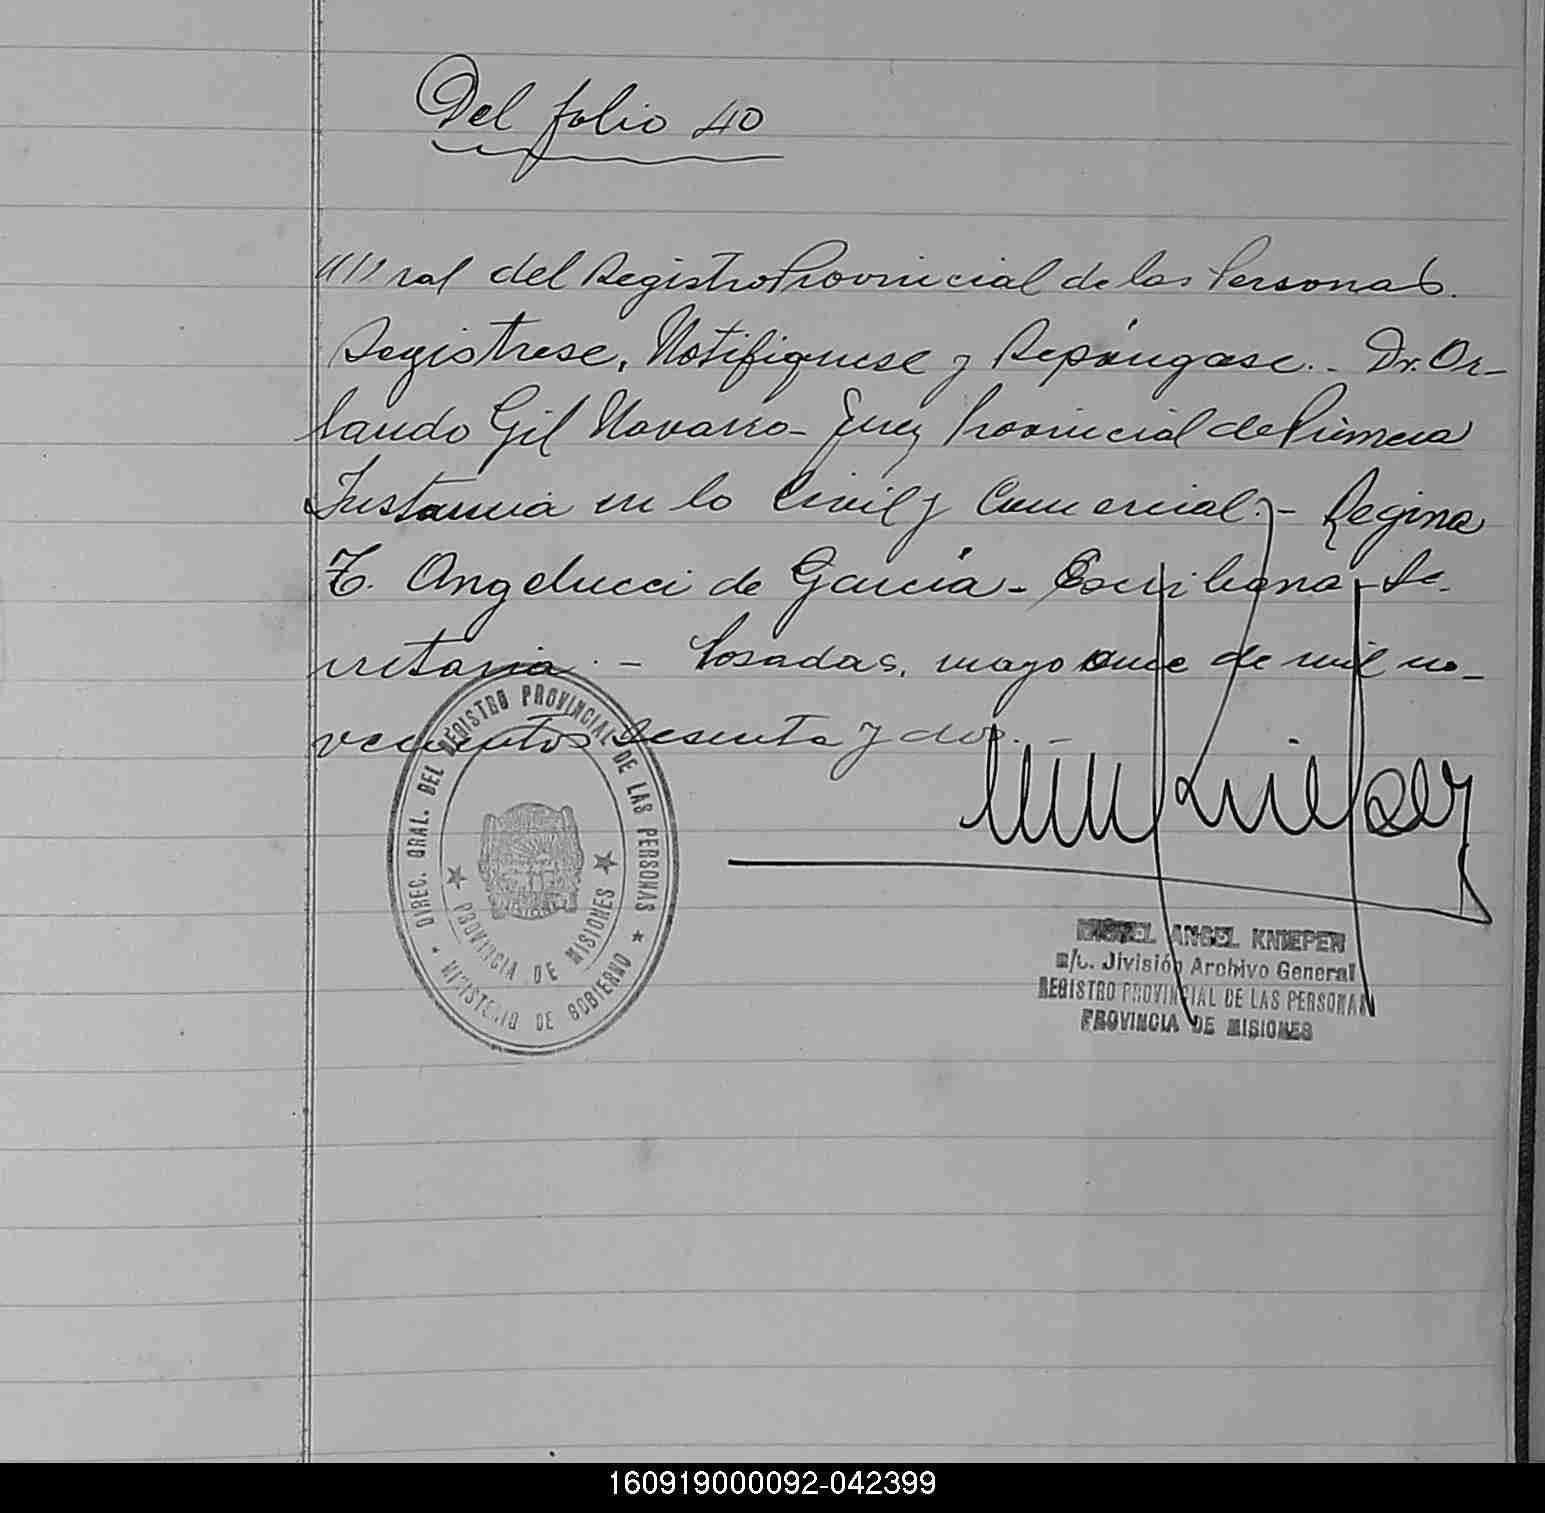 Del folio 40
////ral del Registro Provincial de las Personas.
Registrese, Notifiquese y Repóngase.- Dr. Or-
lando Gil Navarro - Juez Provincial de Primera
Instancia en lo Civil y Comercial.- Regina
T. Angelucci de García - Escribana - Se-
cretaria.- Posadas, mayo once de mil no-
vecientos sesenta y dos.-
DIREC. GRAL. DEL REGISTRO PROVINCIAL DE LAS PERSONAS
PROVINCIA DE MISIONES
MINISTERIO DE GOBIERNO
MIGUEL ANGEL KNIEPER
a/c. División Archivo General
REGISTRO PROVINCIAL DE LAS PERSONAS
PROVINCIA DE MISIONES
160919000092-042399